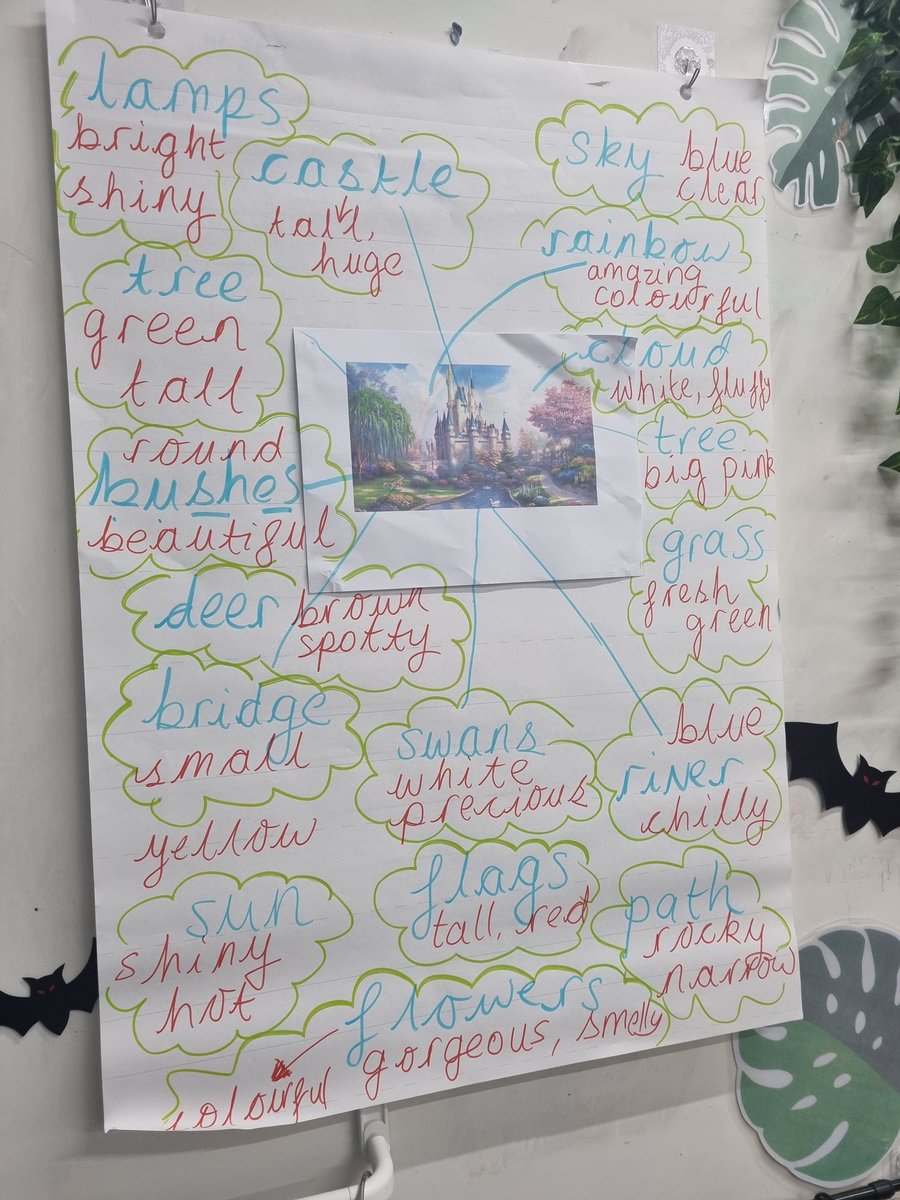 lamps
bright
shiny
castle
tall,
huge
sky blue
clear
rainbow
amazing
colourful
tree
green
tall
cloud
white, fluffy
round
bushes
beautiful
tree
big pink
grass
fresh
green
deer brown
spotty
bridge
small
swans
white
precious
blue
river
chilly
yellow
sun
shiny
hot
flags
tall, red
path
rocky
narrow
flowers
gorgeous, smelly
colourful